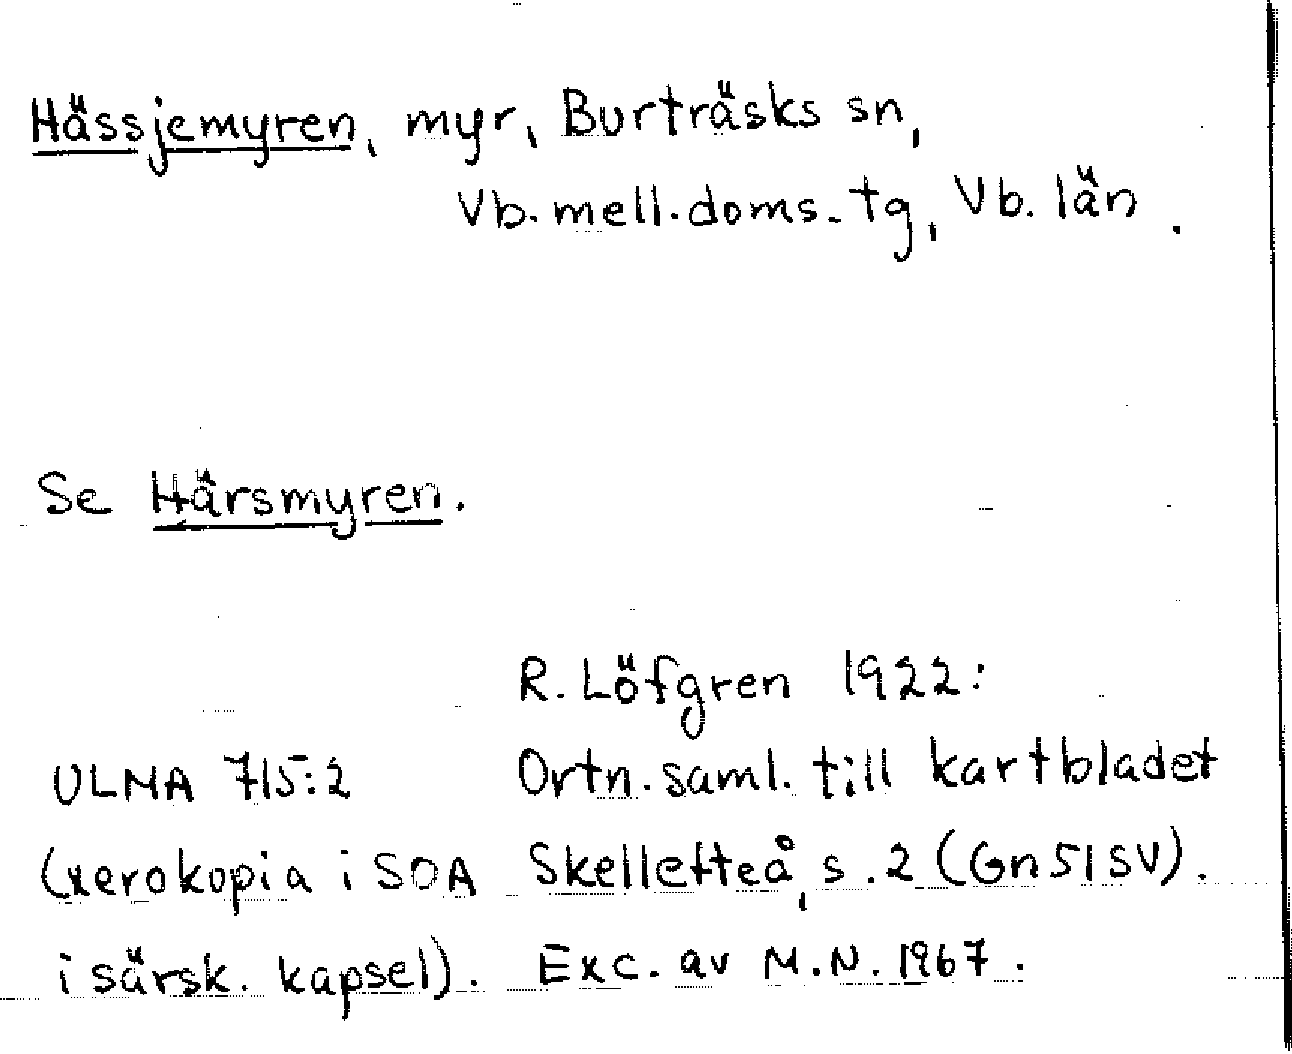 Hässjemyren, myr, Burträsks sn,
Vb. mell. doms. tg, Vb. län.
Se Härsmyren.
R. Löfgren 1922:
ULMA 715:2 Ortn. saml. till kartbladet
(xerokopia i SOA Skellefteå, s. 2 (Gn 51 SV).
i särsk. kapsel). Exc. av M.N. 1967.